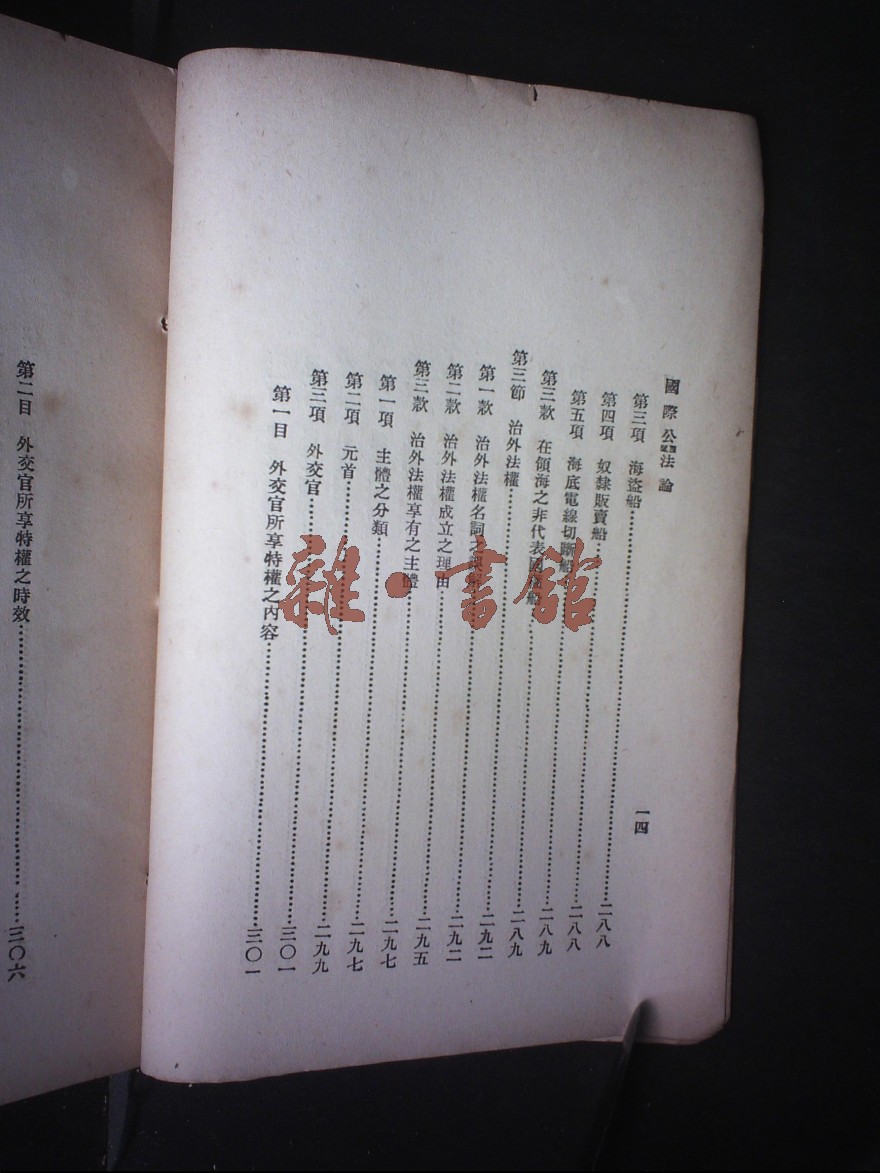 國際公法論
一四
第三項 海盜船……二八八
第四項 奴隸販賣船……二八八
第五項 海底電線切斷船……二八九
第三款 在領海之非代表國船……二八九
第三節 治外法權……二九二
第一款 治外法權名詞之……二九二
第二款 治外法權成立之理由……二九五
第三款 治外法權享有之主體……二九七
第一項 主體之分類……二九七
第二項 元首……二九九
第三項 外交官……三〇一
第一目 外交官所享特權之內容……三〇一
第二目 外交官所享特權之時效……三〇六
雜·書館